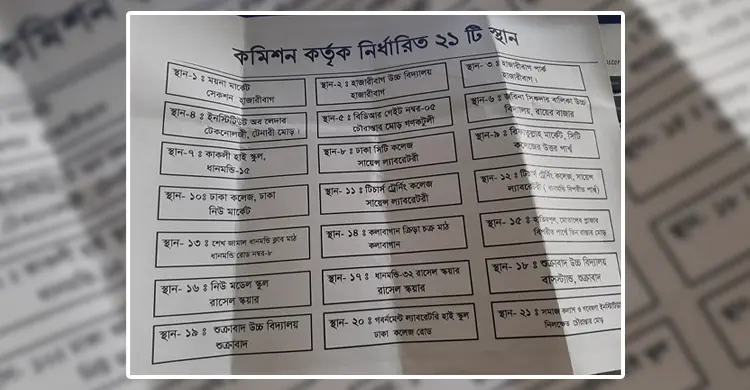 কমিশন কর্তৃক নির্ধারিত ২১ টি স্থান
স্থান-১ ঃ ময়না মার্কেট
সেকশন হাজারীবাগ
স্থান-২ ঃ হাজারীবাগ উচ্চ বিদ্যালয়
হাজারীবাগ
স্থান- ৩ ঃ হাজারীবাগ পার্ক
হাজারীবাগ।
স্থান-৪ ঃ ইনস্টিটিউট অব লেদার
টেকনোলজী, টেনারী মোড়।
স্থান-৫ ঃ বিডিআর গেইট নম্বর-০৫
চৌরাস্তার মোড় গণকটুলী
স্থান-৬ ঃ জরিনা সিকদার বালিকা উচ্চ
বিদ্যালয়, রায়ের বাজার
স্থান-৭ ঃ কাকলী হাই স্কুল,
ধানমন্ডি-১৫
স্থান-৮ ঃ ঢাকা সিটি কলেজ
সায়েন্স ল্যাবরেটরী
স্থান-৯ ঃ মার্কেট, সিটি
কলেজের উত্তর পার্শ্ব
স্থান- ১০ঃ ঢাকা কলেজ, ঢাকা
নিউ মার্কেট
স্থান- ১১ ঃ টিচার্স ট্রেনিং কলেজ
সায়েন্স ল্যাবরেটরী
স্থান- ১২ ঃ টিচার্স ট্রেনিং কলেজ, সায়েন্স
ল্যাবরেটরী ( বিপরীত পার্শ্ব)
স্থান- ১৩ ঃ শেখ জামাল ধানমন্ডি ক্লাব মাঠ
ধানমন্ডি রোড নম্বর-৮
স্থান- ১৪ ঃ কলাবাগান ক্রিড়া চক্র মাঠ
কলাবাগান
স্থান- ১৫ ঃ হাতিরপুল, মোতালেব প্লাজার
বিপরীত পার্শ্বে তিন রাস্তার মোড়
স্থান- ১৬ ঃ নিউ মডেল স্কুল
রাসেল স্কয়ার
স্থান- ১৭ ঃ ধানমন্ডি-৩২ রাসেল স্কয়ার
রাসেল স্কয়ার
স্থান- ১৮ ঃ শুক্রাবাদ উচ্চ বিদ্যালয়
বাসস্ট্যান্ড, শুক্রাবাদ
স্থান- ১৯ ঃ শুক্রাবাদ উচ্চ বিদ্যালয়
শুক্রাবাদ
স্থান- ২০ ঃ গবর্নমেন্ট ল্যাবরেটরি হাই স্কুল
ঢাকা কলেজ রোড
স্থান- ২১ ঃ সমাজ কল্যাণ ও গবেষণা ইনস্টিটিউট
নিলক্ষেত চৌরাস্তার মোড়